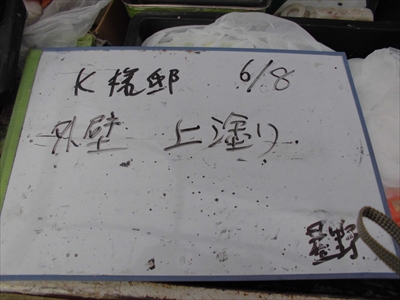 K様邸 6/8
外壁 上塗り
星野